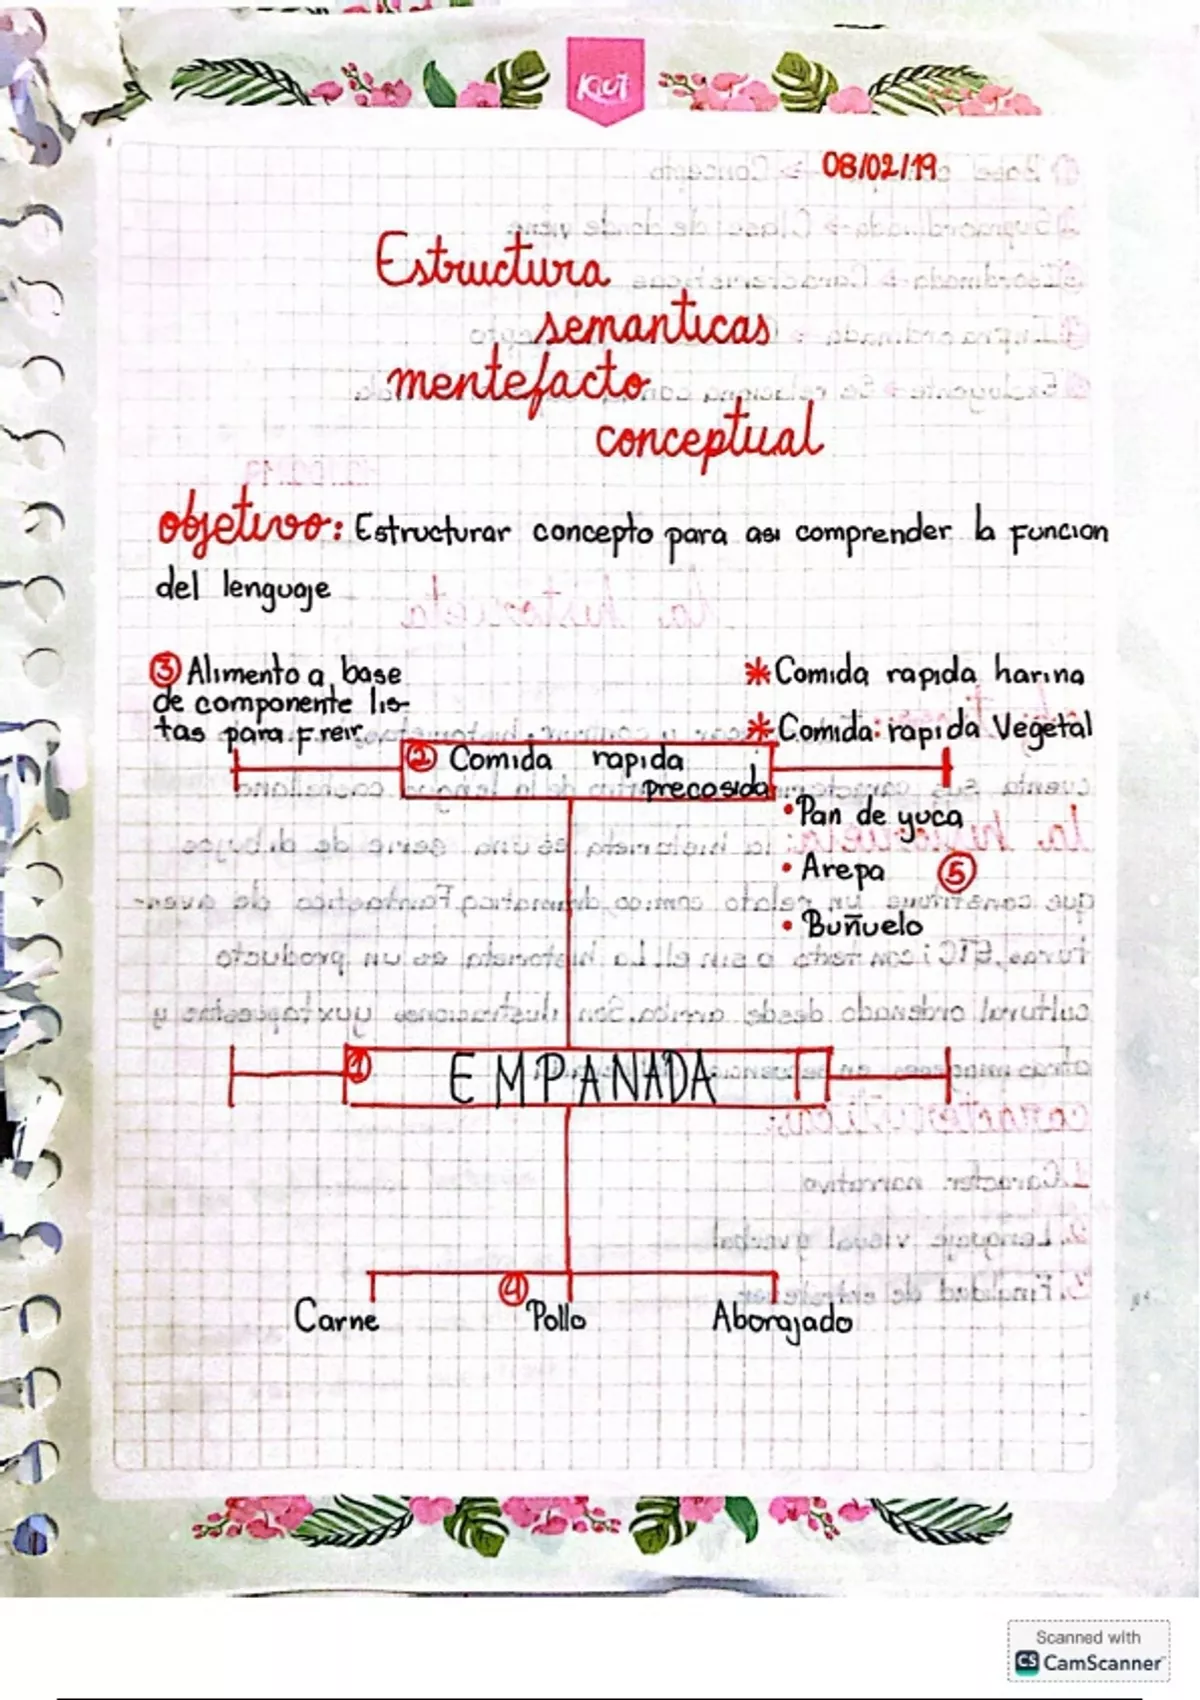 KUT
08/02/19
Estructura
semanticas
mentefacto
conceptual
objetivo: Estructurar concepto para asi comprender la funcion
del lenguaje
③ Alimento a base
de componente lis-
tas para freir
* Comida rapida harina
* Comida: rapida Vegetal
② Comida rapida
precosida
• Pan de yuca
• Arepa ⑤
• Buñuelo
① EMPANADA
④
Carne Pollo Aborajado
Scanned with
CS CamScanner